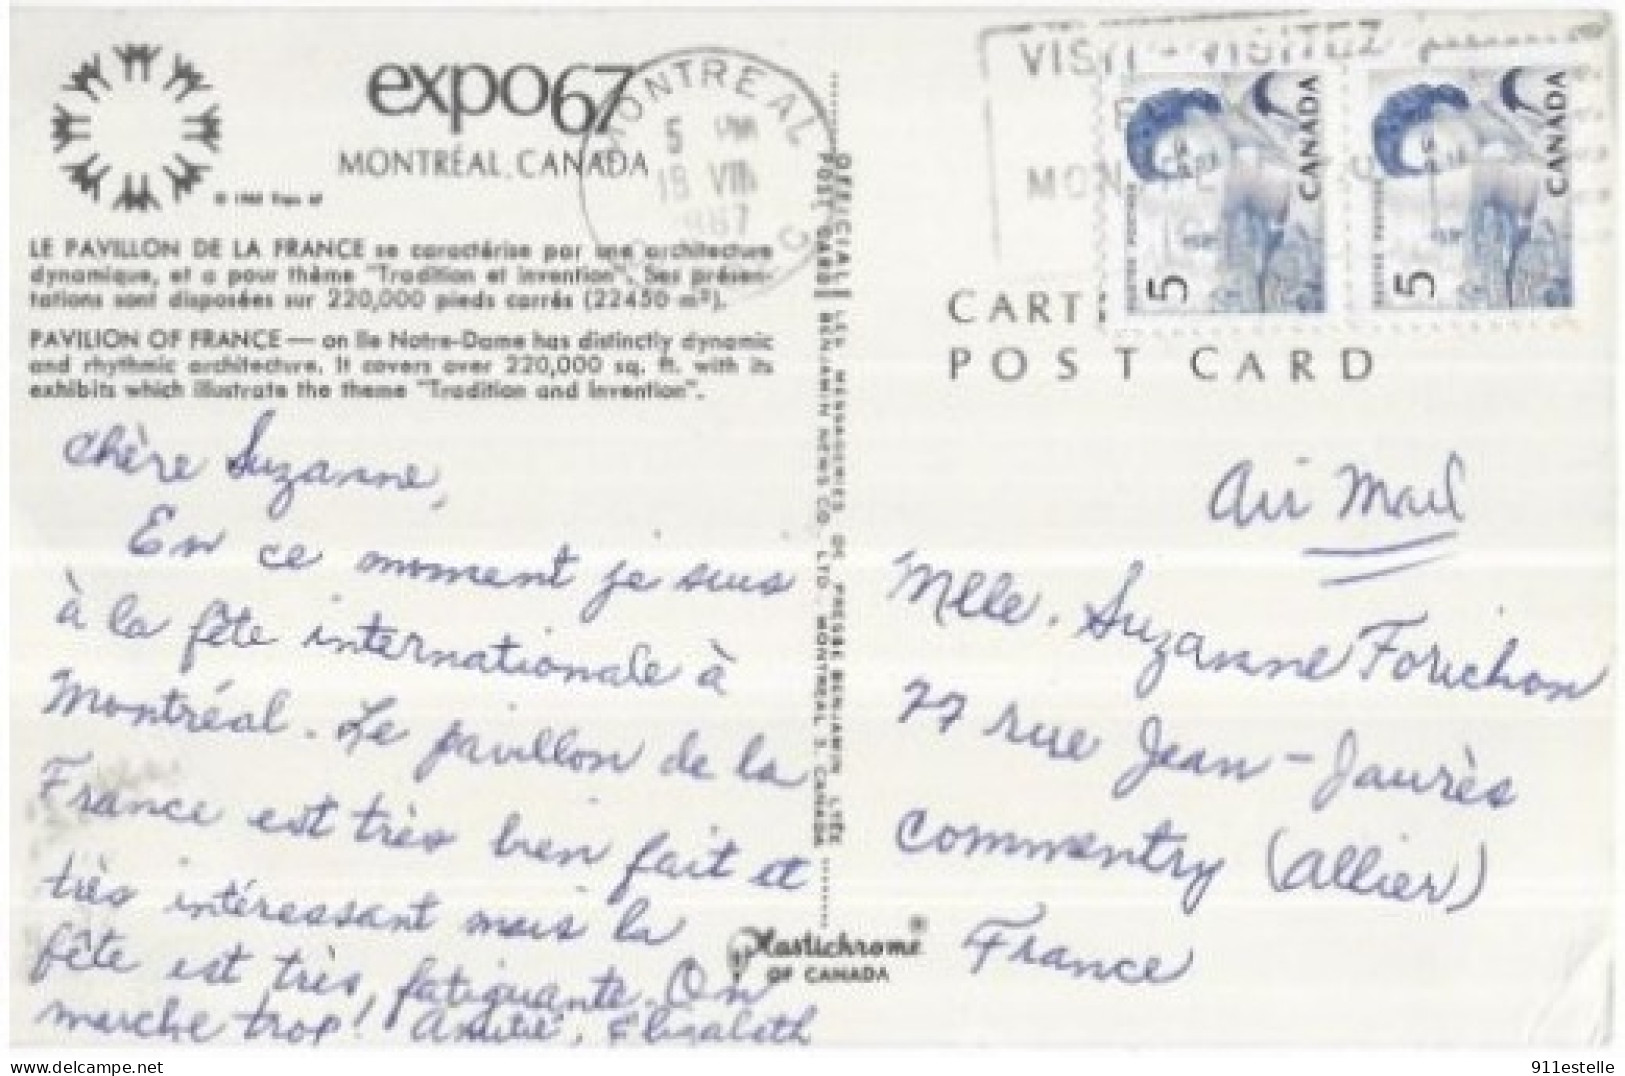 expo67
MONTRÉAL, CANADA
LE PAVILLON DE LA FRANCE se caractérise par une architecture
dynamique, et a pour thème "Tradition et Invention". Ses présen-
tations sont disposées sur 220,000 pieds carrés (22450 m²).
PAVILION OF FRANCE — on Ile Notre-Dame has distinctly dynamic
and rhythmic architecture. It covers over 220,000 sq. ft. with its
exhibits which illustrate the theme "Tradition and Invention".
Chère Suzanne,
En ce moment je suis
à la fête internationale à
Montréal. Le pavillon de la
France est très bien fait et
très intéressant mais la
fête est très fatiguante. On
marche trop! Amitié, Elizabeth
OFFICIAL LES MESSAGERIES DE PRESSE BENJAMIN LTÉE
POST CARD BENJAMIN NEWS CO. LTD. MONTREAL 3, CANADA
Plastichrome®
OF CANADA
MONTREAL
VISIT - VISITEZ
CANADA
5
CANADA
5
CART
POST CARD
Air Mail
Mlle. Suzanne Forichon
77 rue Jean-Jaurès
Commentry (Allier)
France
911estelle